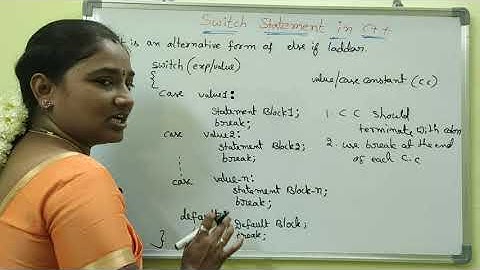 Switch Statement in C++
It is an alternative form of else if laddar.
switch (exp/value)
{
value/case constant (CC)
case value1:
Statement Block1;
break;
case value2:
statement Block2;
break;
case value-n:
statement Block-n;
break;
default:
Default Block;
break;
}
1. C C should
terminate with colon
2. use break at the end
of each C.C